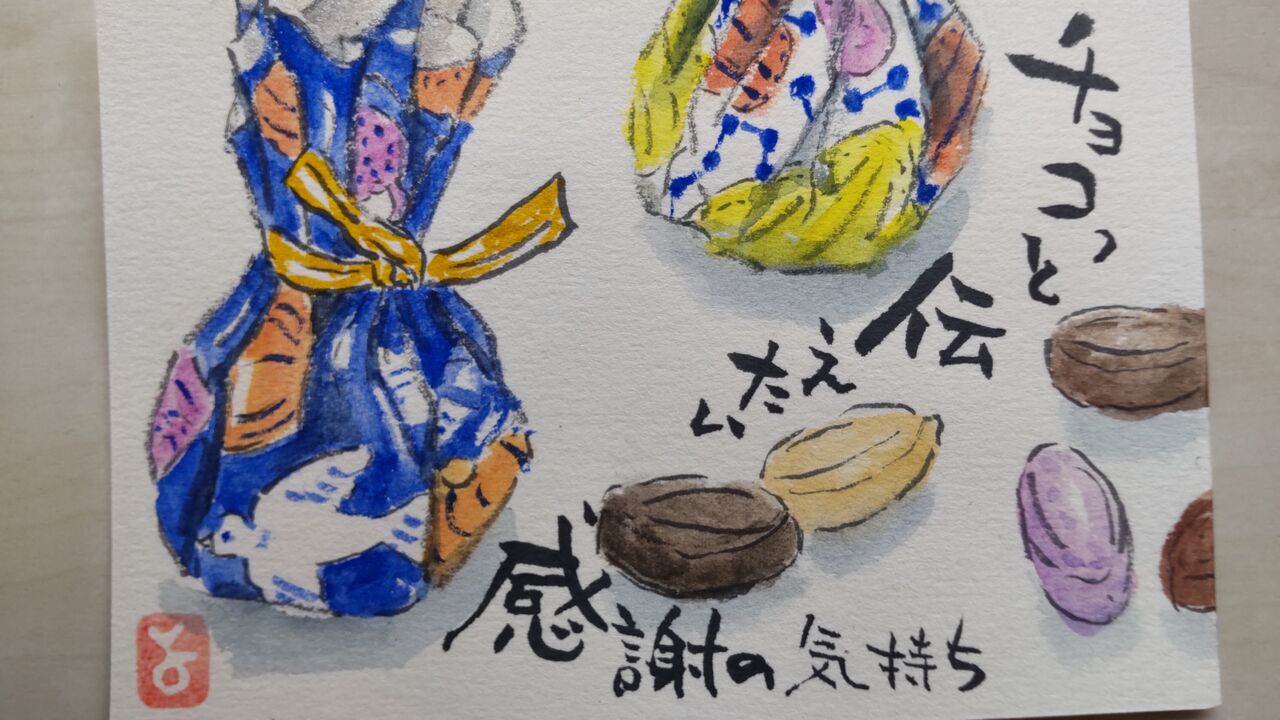 チョコっと
伝えたい
感謝の気持ち
よ